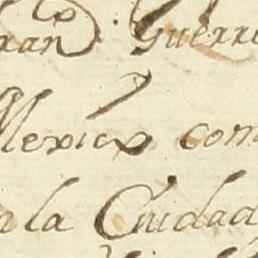 ran Guerre
Mexico com
n la Ciudad